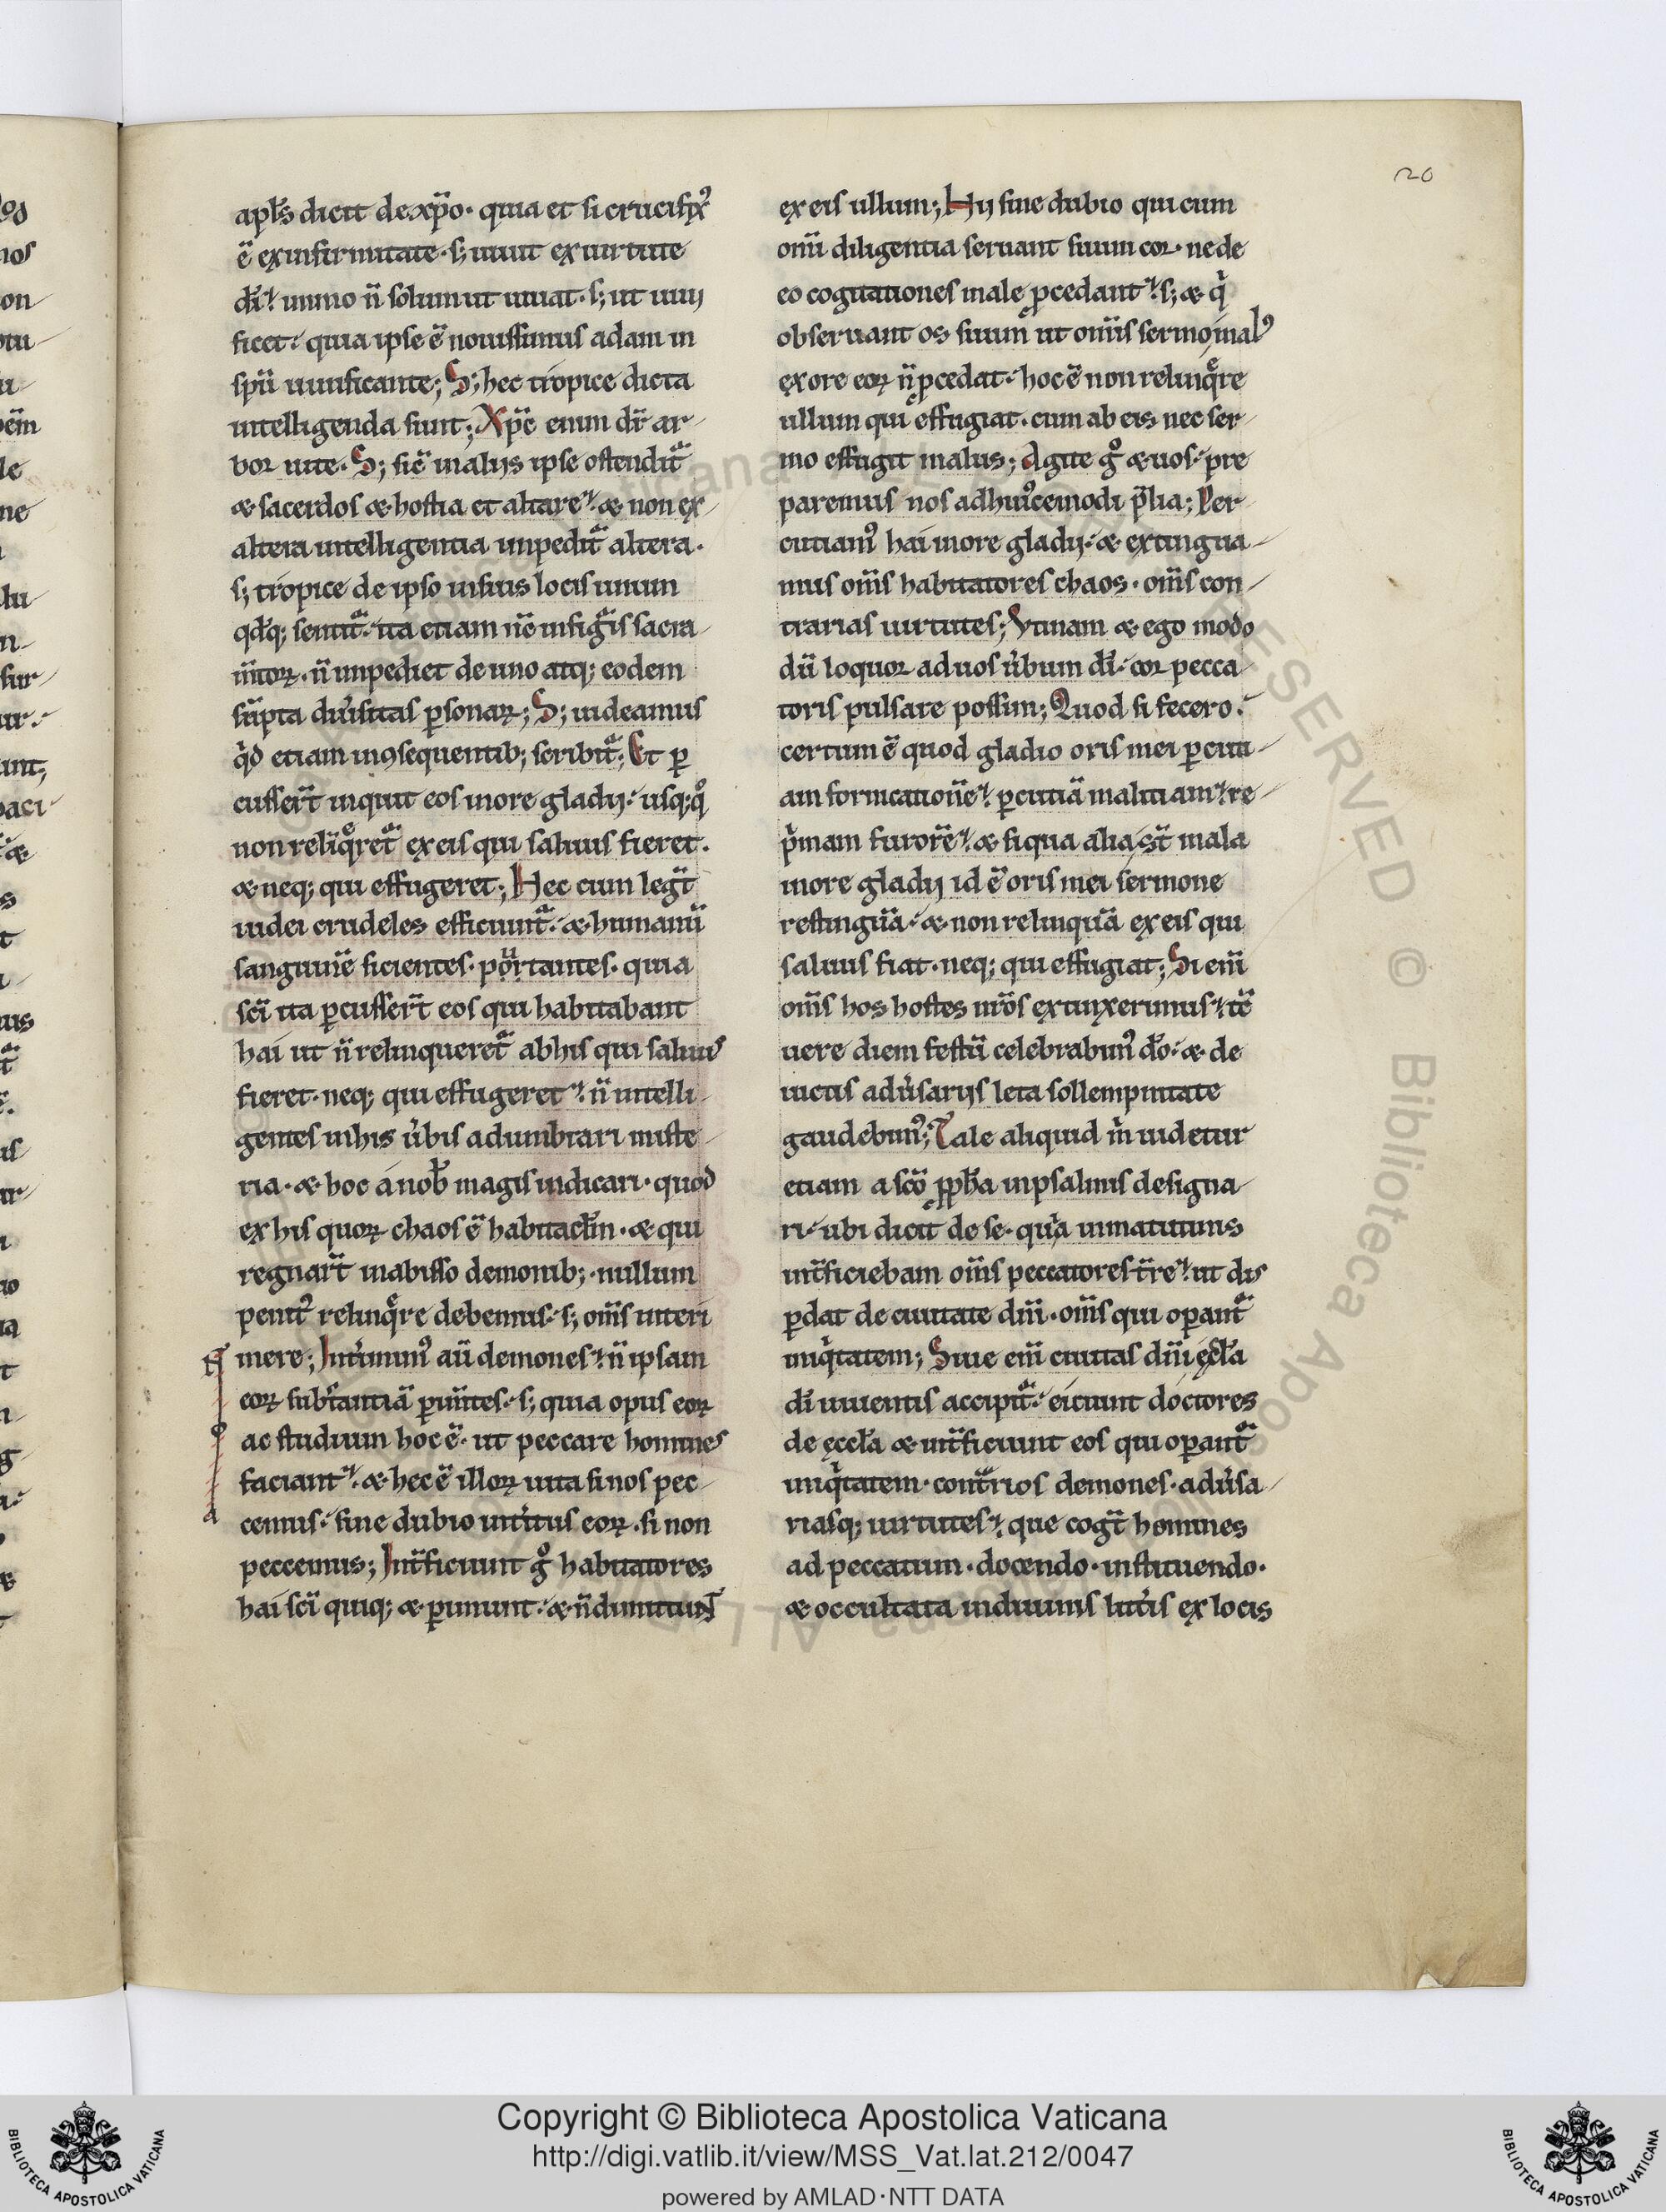 20
apl̃s dicit de xp̃o· quia et si crucifix᷒
ẽ ex infirmitate· s; uiuit ex uirtute
dĩ· immo ñ solum ut uiuat· s; ut uiuı
ficet· quia ipse ẽ nouissimus adam in
spũ uiuificante; S; hec tropice dicta
intelligenda sunt; Xp̃c enim dr̃ ar
bor uite. S; sic̃ in alijs ipse ostendit᷑
& sacerdos & hostia et altare· & non ex
altera intelligentia inpedit᷑ altera·
s; tropice de ipso in suis locis unum
qdq; sentit᷑· ita etiam nc̃ in figͣis sacra
m̃toꝝ· ñ inpediet de uno atq; eodem
sũpta diũsitas ꝑsonaꝝ; S; uideamus
qͥd etiam in ꝯsequentib; scribit᷑; Et ꝑ
cusser̃t inquit eos in ore gladij· usq; qͦ
non relinqͤret᷑ ex eis qui saluus fieret·
& neq; qui effugeret; Hec cum legt̃
iudei crudeles efficiunt᷑· & humanũ
sanguinẽ sicientes· portantes· quia
sc̃i ita ꝑcusser̃t eos qui habitabant
hai ut ñ relinqueret᷑ ab his qui saluus
fieret· neq; qui effugeret· ñ intelli
gentes in his ũbis adumbrari miste
ria· & hoc a nob̃ magis indicari· quod
ex his quoꝝ chaos ẽ habitacl̃m· & qui
regnar̃t in abisso demonib; nullum
penit᷒ relinqͤre debemus· s; om̃s interi
mere; Int̃imim᷒ aũ demones· ñ ipsam
eoꝝ substantiã ꝑim̃tes· s; quia opus eoꝝ
ac studium hoc ẽ· ut peccare homines
faciant· & hec ẽ illoꝝ uita si nos pec
cemus· sine dubio int̃itus eoꝝ· si non
peccemus; Int̃ficiunt gͦ habitatores
hai sc̃i quiq; & ꝑimunt· & ñ dimittunt
ex eis ullum; Hij sine dubio qui cum
om̃i diligentia seruant suum cor· ne de
eo cogitationes male ꝓcedant· s; & qͥ
obseruant os suum ut om̃is sermo mal᷒
ex ore eoꝝ ñ ꝓcedat· hoc ẽ non relinqͤre
ullum qui effugiat· cum ab eis nec ser
mo effugit malus; Agite gͦ & uos· pre
paremus nos ad hui᷒cemodi p̃lia; Per
cutiam᷒ hai in ore gladij· & extingua
mus om̃s habitatores chaos· om̃s con
trarias uirtutes; Vtinam & ego modo
dũ loquor ad uos ũbum dĩ· cor pecca
toris pulsare possim; Quod si fecero·
certum ẽ quod gladio oris mei ꝑcuti
am fornicationẽ· ꝑcutiã malitiam· re
pͥmam furorẽ· & siqua alia st̃ mala
in ore gladij id ẽ oris mei sermone
restinguã· & non relinquã ex eis qui
saluus fiat· neq; qui effugiat; Si em̃
om̃s hos hostes nr̃os extinxerimus· tc̃
uere diem festũ celebrabim᷒ dõ· & de
uictis adũsarijs leta sollempnitate
gaudebim᷒; Tale aliquid mͥ uidetur
etiam a sc̃o ꝓph̃a in psalmis designa
ri· ubi dicit de se· quia in matutinis
int̃ficiebam om̃s peccatores t̃re· ut dis
ꝑdat de ciuitate dñi· om̃s qui oꝑant᷑
iniqͥtatem; Siue em̃ ciuitas dñi ęcl̃a
dĩ uiuentis accipit᷑· eiciunt doctores
de ęccl̃a & int̃ficiunt eos qui oꝑant᷑
iniqͥtatem· contͣrios demones· adũsa
riasq; uirtutes· que cogt̃ homines
ad peccatum· docendo· instituendo·
& occultata in diuinis litt̃is ex locis
Copyright © Biblioteca Apostolica Vaticana
http://digi.vatlib.it/view/MSS_Vat.lat.212/0047
powered by AMLAD·NTT DATA
BIBLIOTECA APOSTOLICA VATICANA
BIBLIOTECA APOSTOLICA VATICANA